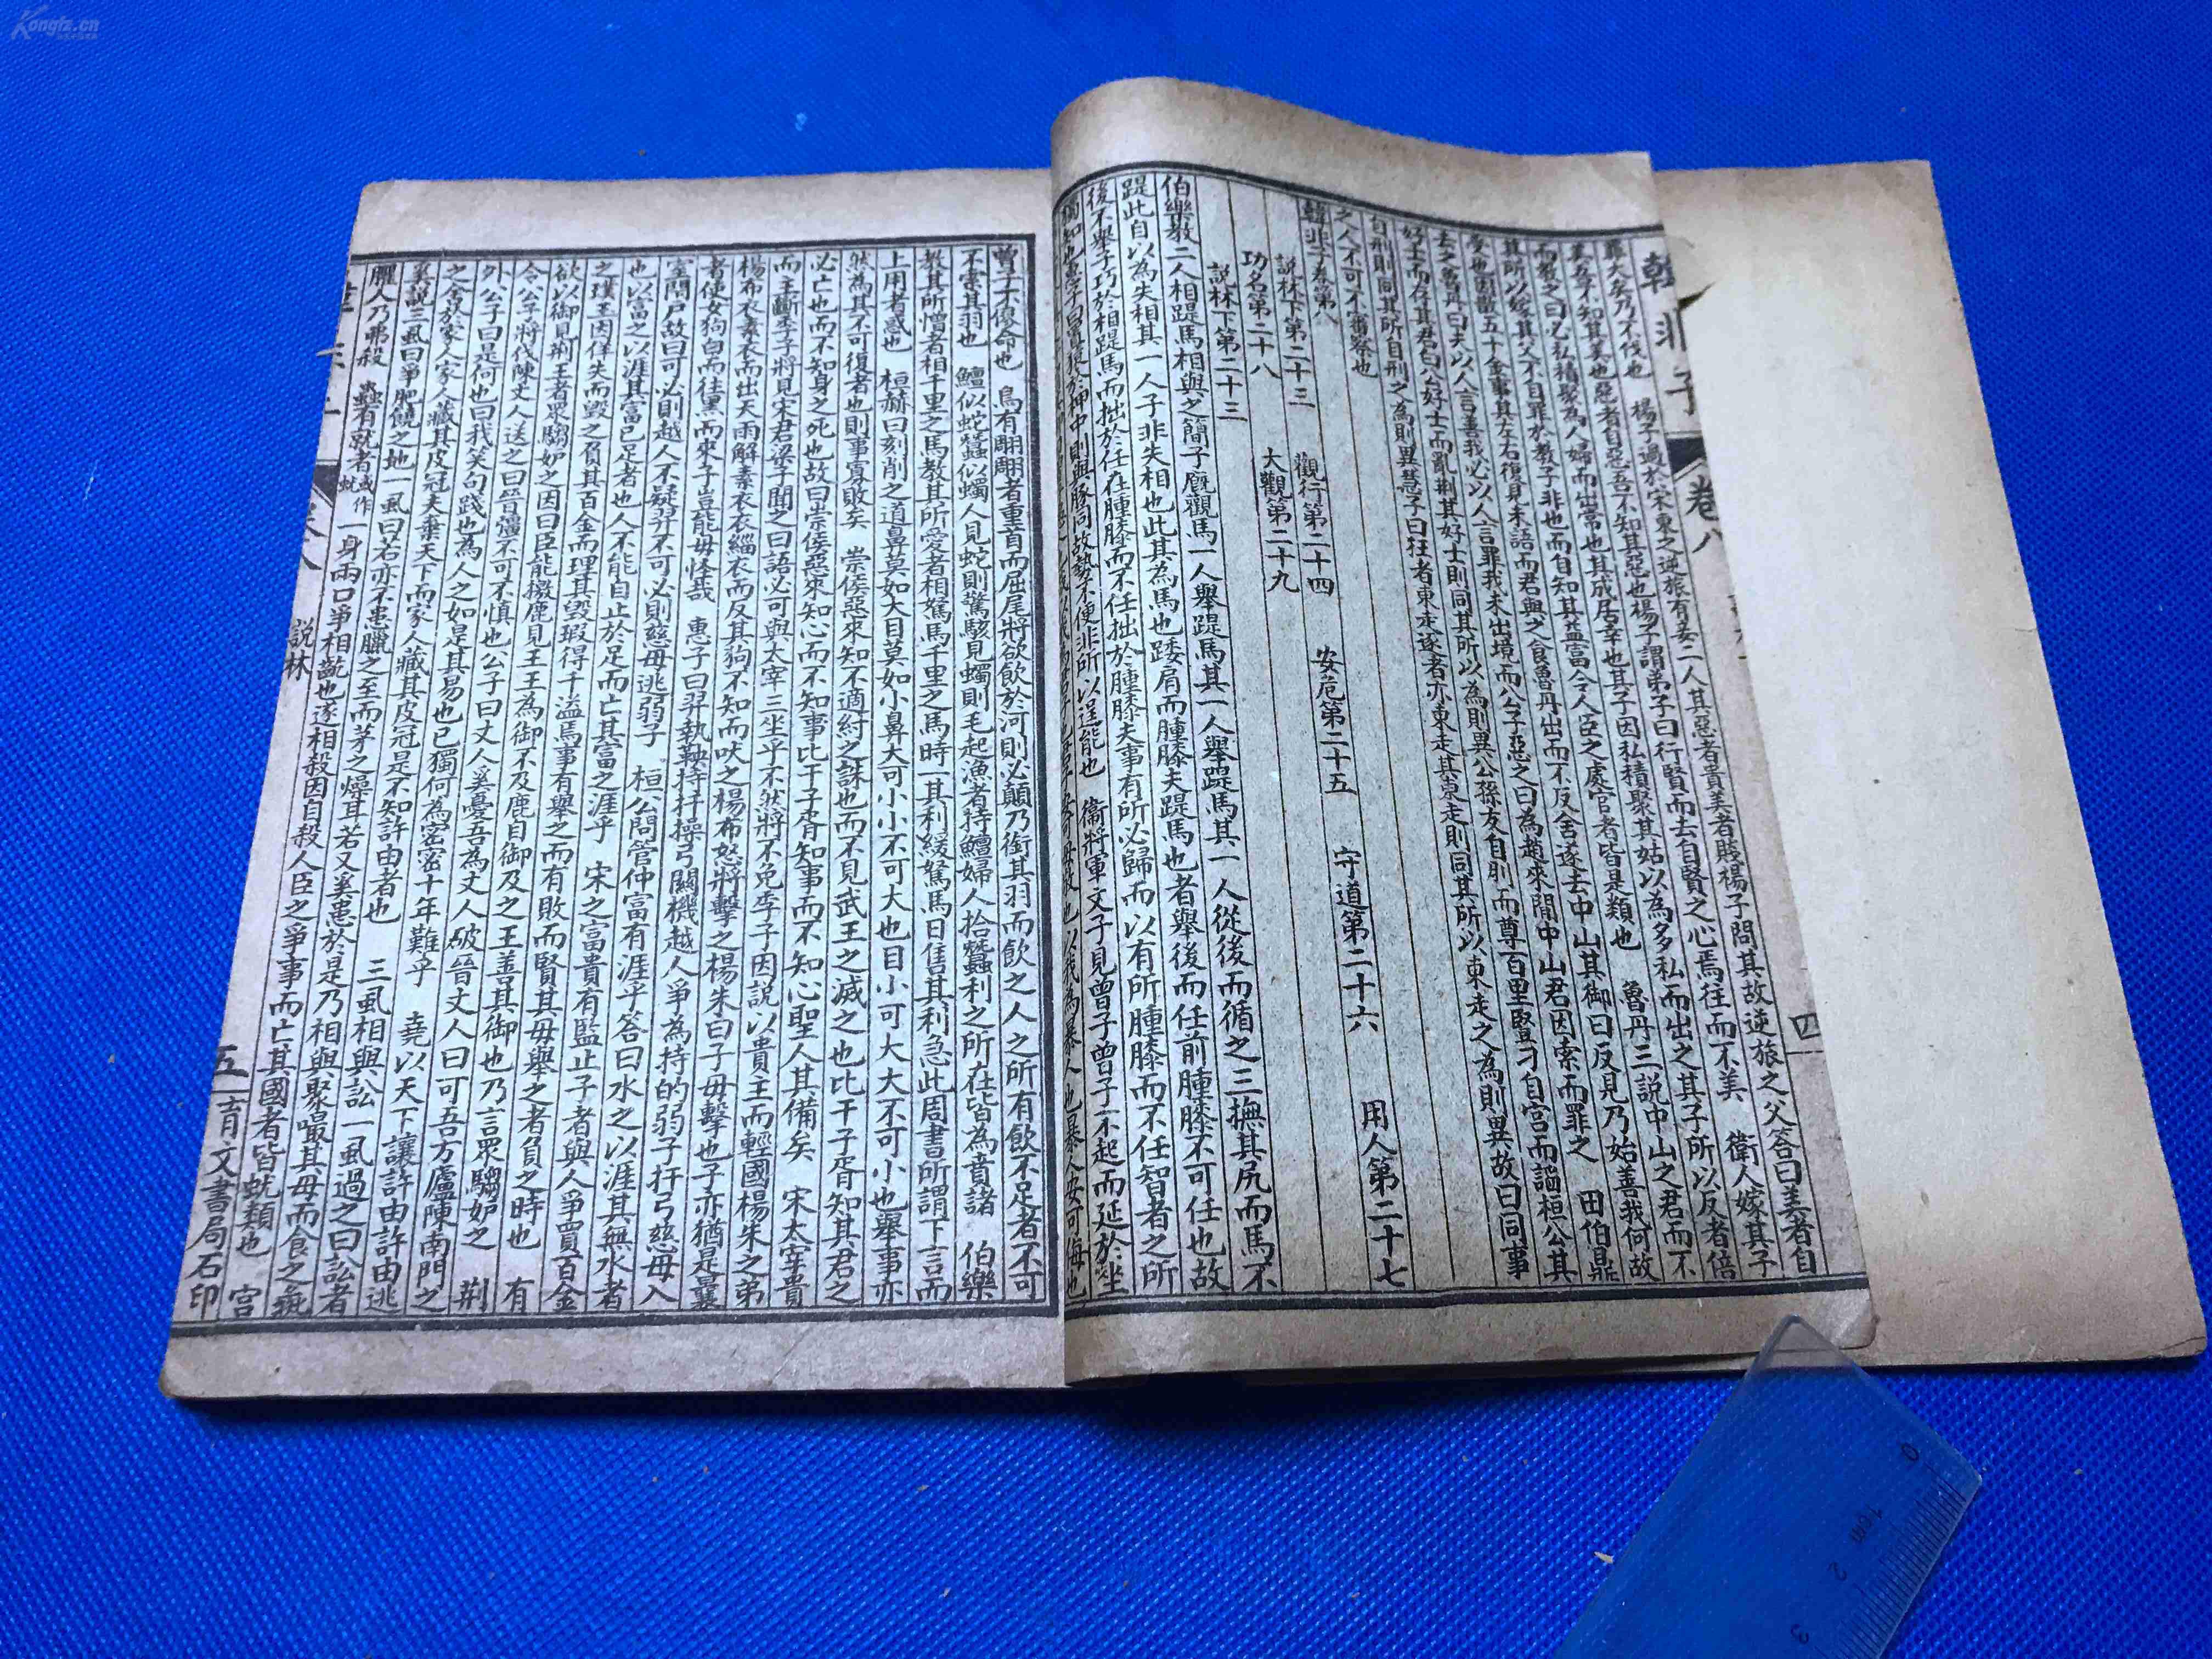 羅大矣乃不伐也　楊子過於宋東之逆旅有妾二人其惡者貴美者賤楊子問其故逆旅之父答曰美者自
美吾不知其美也惡者自惡吾不知其惡也楊子謂弟子曰行賢而去自賢之心焉往而不美　衛人嫁其子
而教之曰必私積聚為人婦而出常也其成居幸也其子因私積聚其姑以為多私而出之其子所以反者倍
其所以嫁其父不自罪於教子非也而自知其益富今人臣之處官者皆是類也　魯丹三說中山之君而不
受也因散五十金事其左右復見未語而君與之食魯丹出而不反舍遂去中山其御曰反見乃始善我何故
去之魯丹曰夫以人言善我必以人言罪我未出境而公子惡之曰為趙來間中山君因索而罪之　田伯鼎
好士而存其君白公好士而亂荆其好士則同其所以為則異公孫友自刖而尊百里豎刁自宮而謟桓公其
自刑則同其所自刑之為則異慧子曰狂者東走逐者亦東走其東走則同其所以東走之為則異故曰同事
之人不可不審察也
韓非子卷第八
說林下第二十三　觀行第二十四　安危第二十五　守道第二十六　用人第二十七
功名第二十八　大觀第二十九
說林下第二十三
伯樂教二人相踶馬相與之簡子廐觀馬一人舉踶馬其一人舉踶馬其一人從後而循之三撫其尻而馬不
踶此自以為失相其一人子非失相也此其為馬也踒肩而腫膝夫踶馬也者舉後而任前腫膝不可任也故
後不舉子巧於相踶馬而拙於任在腫膝而不任拙於腫膝夫事有所必歸而以有所腫膝而不任智者之所
獨知也惠子曰置猨於柙中則與豚同故勢不便非所以逞能也　衞將軍文子見曾子曾子不起而延於坐
曾子不僇命也　鳥有翢翢者重首而屈尾將欲飲於河則必顛乃銜其羽而飲之人之所有飲不足者不可
不索其羽也　鱣似蛇蠶似蠋人見蛇則驚駭見蠋則毛起漁者持鱣婦人拾蠶利之所在皆為賁諸　伯樂
教其所憎者相千里之馬教其所愛者相駑馬千里之馬時一其利緩駑馬日售其利急此周書所謂下言而
上用者惑也　桓赫曰刻削之道鼻莫如大目莫如小鼻大可小小不可大也目小可大大不可小也舉事亦
然為其不可復者也則事寡敗矣　崇侯惡來知不適紂之誅也而不見武王之滅之也比干子胥知其君之
必亡也而不知身之死也故曰崇侯惡來知心而不知事比干子胥知事而不知心聖人其備矣　宋太宰貴
而主斷季子將見宋君梁子聞之曰語必可與太宰三坐乎不然將不免季子因說以貴主而輕國楊朱之弟
楊布衣素衣而出天雨解素衣衣緇衣而反其狗不知而吠之楊布怒將擊之楊朱曰子毋擊也子亦猶是曩
者使女狗白而往黑而來子豈能毋怪哉　惠子曰羿執鞅持扞操弓關機越人爭為持的弱子扞弓慈母入
室閉戶故曰可必則越人不疑羿不可必則慈母逃弱子　桓公問管仲富有涯乎答曰水之以涯其無水者
也以富之以涯其富已足者也人不能自止於足而亡其富之涯乎　宋之富賈有監止子者與人爭買百金
之璞玉因佯失而毀之負其百金而理其毀瑕得千溢焉事有舉之而有敗而賢其毋舉之者負之時也　有
欲以御見荆王者眾騶妒之因曰臣能撽鹿見王王為御不及鹿自御及之王善其御也乃言眾騶妒之　荆
令公子將伐陳丈人送之曰晉彊不可不慎也公子曰丈人奚憂吾為丈人破晉丈人曰可吾方廬陳南門之
外公子曰是何也曰我笑句踐也為人之如是其易也已獨何為密密十年難乎　堯以天下讓許由許由逃
之舍於家人家人藏其皮冠夫棄天下而家人藏其皮冠是不知許由者也　三虱相與訟一虱過之曰訟者
奚說三虱曰爭肥饒之地一虱曰若亦不患臘之至而茅之燥耳若又奚患於是乃相與聚嘬其母而食之彘
臞人乃弗殺　蟲有就者或作蚘一身兩口爭相齕也遂相殺因自殺人臣之爭事而亡其國者皆蚘類也　宮
說林
五
育文書局石印
韓非子
卷八
四
Kongfz.cn
0
1cm
2
3